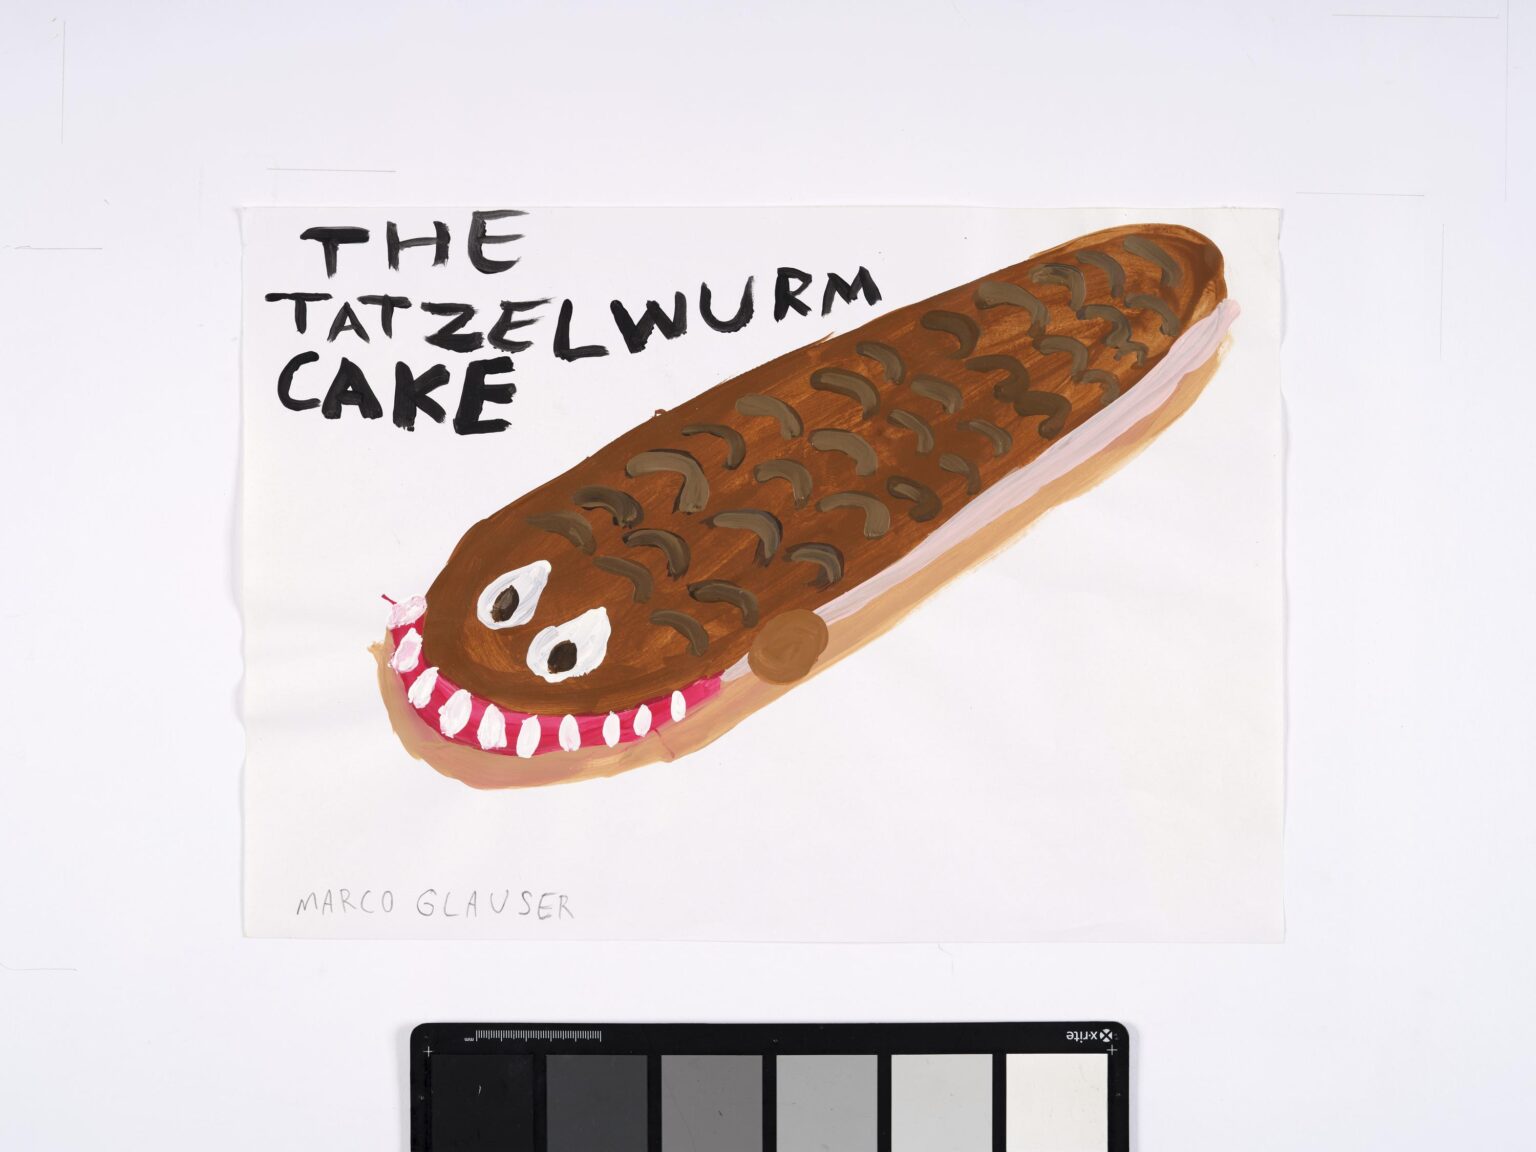 THE
TATZELWURM
CAKE
MARCO GLAUSER
mm
x·rite